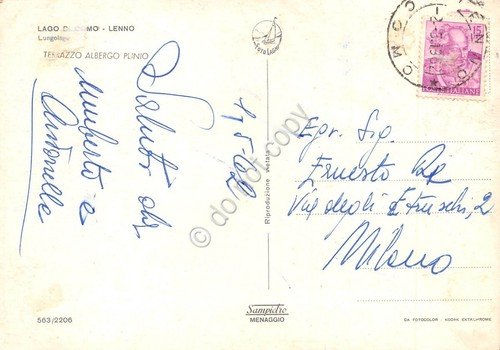 LAGO DI COMO - LENNO
Lungolago
TERRAZZO ALBERGO PLINIO
Foto Lario
Saluti da
Umberto e
Antonella
1,5-62
Riproduzione vietata
Egr. Sig
Ernesto
Via degli Etruschi, 2
Milano
COMO
15
POSTE ITALIANE
do not copy
563/2206
Sampietro
MENAGGIO
DA FOTOCOLOR - KODAK EKTACHROME